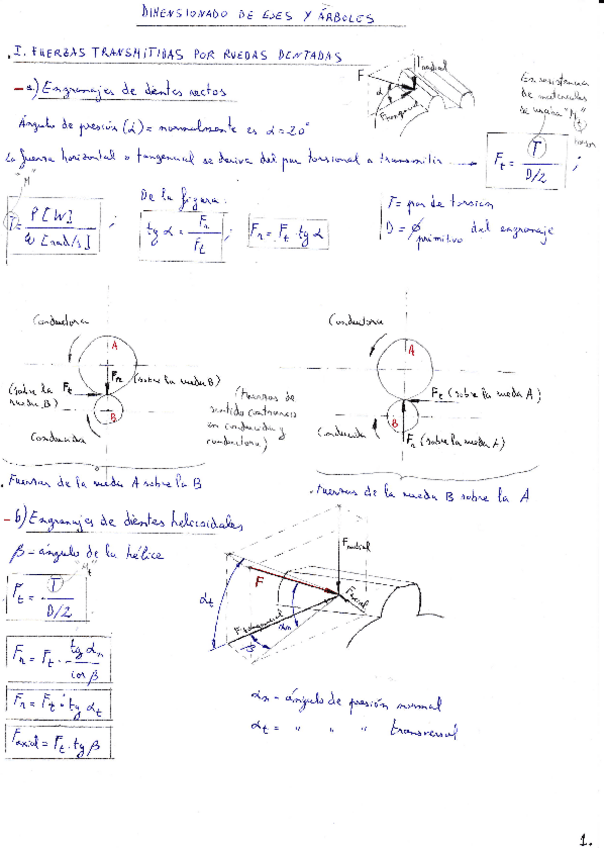 DIMENSIONADO DE EJES Y ÁRBOLES
I. FUERZAS TRANSMITIDAS POR RUEDAS DENTADAS
- a) Engranajes de dientes rectos
F
Fradial
α
Ftangencial
En resistencia
de materiales
se usaba "Mt"
torsor
Ángulo de presión (α) = normalmente es α = 20°
La fuerza horizontal o tangencial se deriva del par torsional a transmitir → Ft = T / D/2 ;
"M"
T = P[W] / ω[rad/s] ;
De la figura:
tg α = Fr / Ft ; Fr = Ft · tg α
T = par de torsión
D = Ø primitivo del engranaje
Conductora
A
Fr (sobre la rueda B)
(sobre la rueda B) Ft
B
Conducida
(Fuerzas de
sentido contrario
en conducida y
conductora)
Conductora
A
Ft (sobre la rueda A)
B
Conducida
Fr (sobre la rueda A)
. Fuerzas de la rueda A sobre la B
. Fuerzas de la rueda B sobre la A
- b) Engranajes de dientes helicoidales
β - ángulo de la hélice
Ft = T / D/2
Fr = Ft · tg αn / cos β
Fr = Ft · tg αt
Faxial = Ft · tg β
Fradial
F
Faxial
αt
Ftangencial
αn
β
αn - ángulo de presión normal
αt = " " " transversal
1.